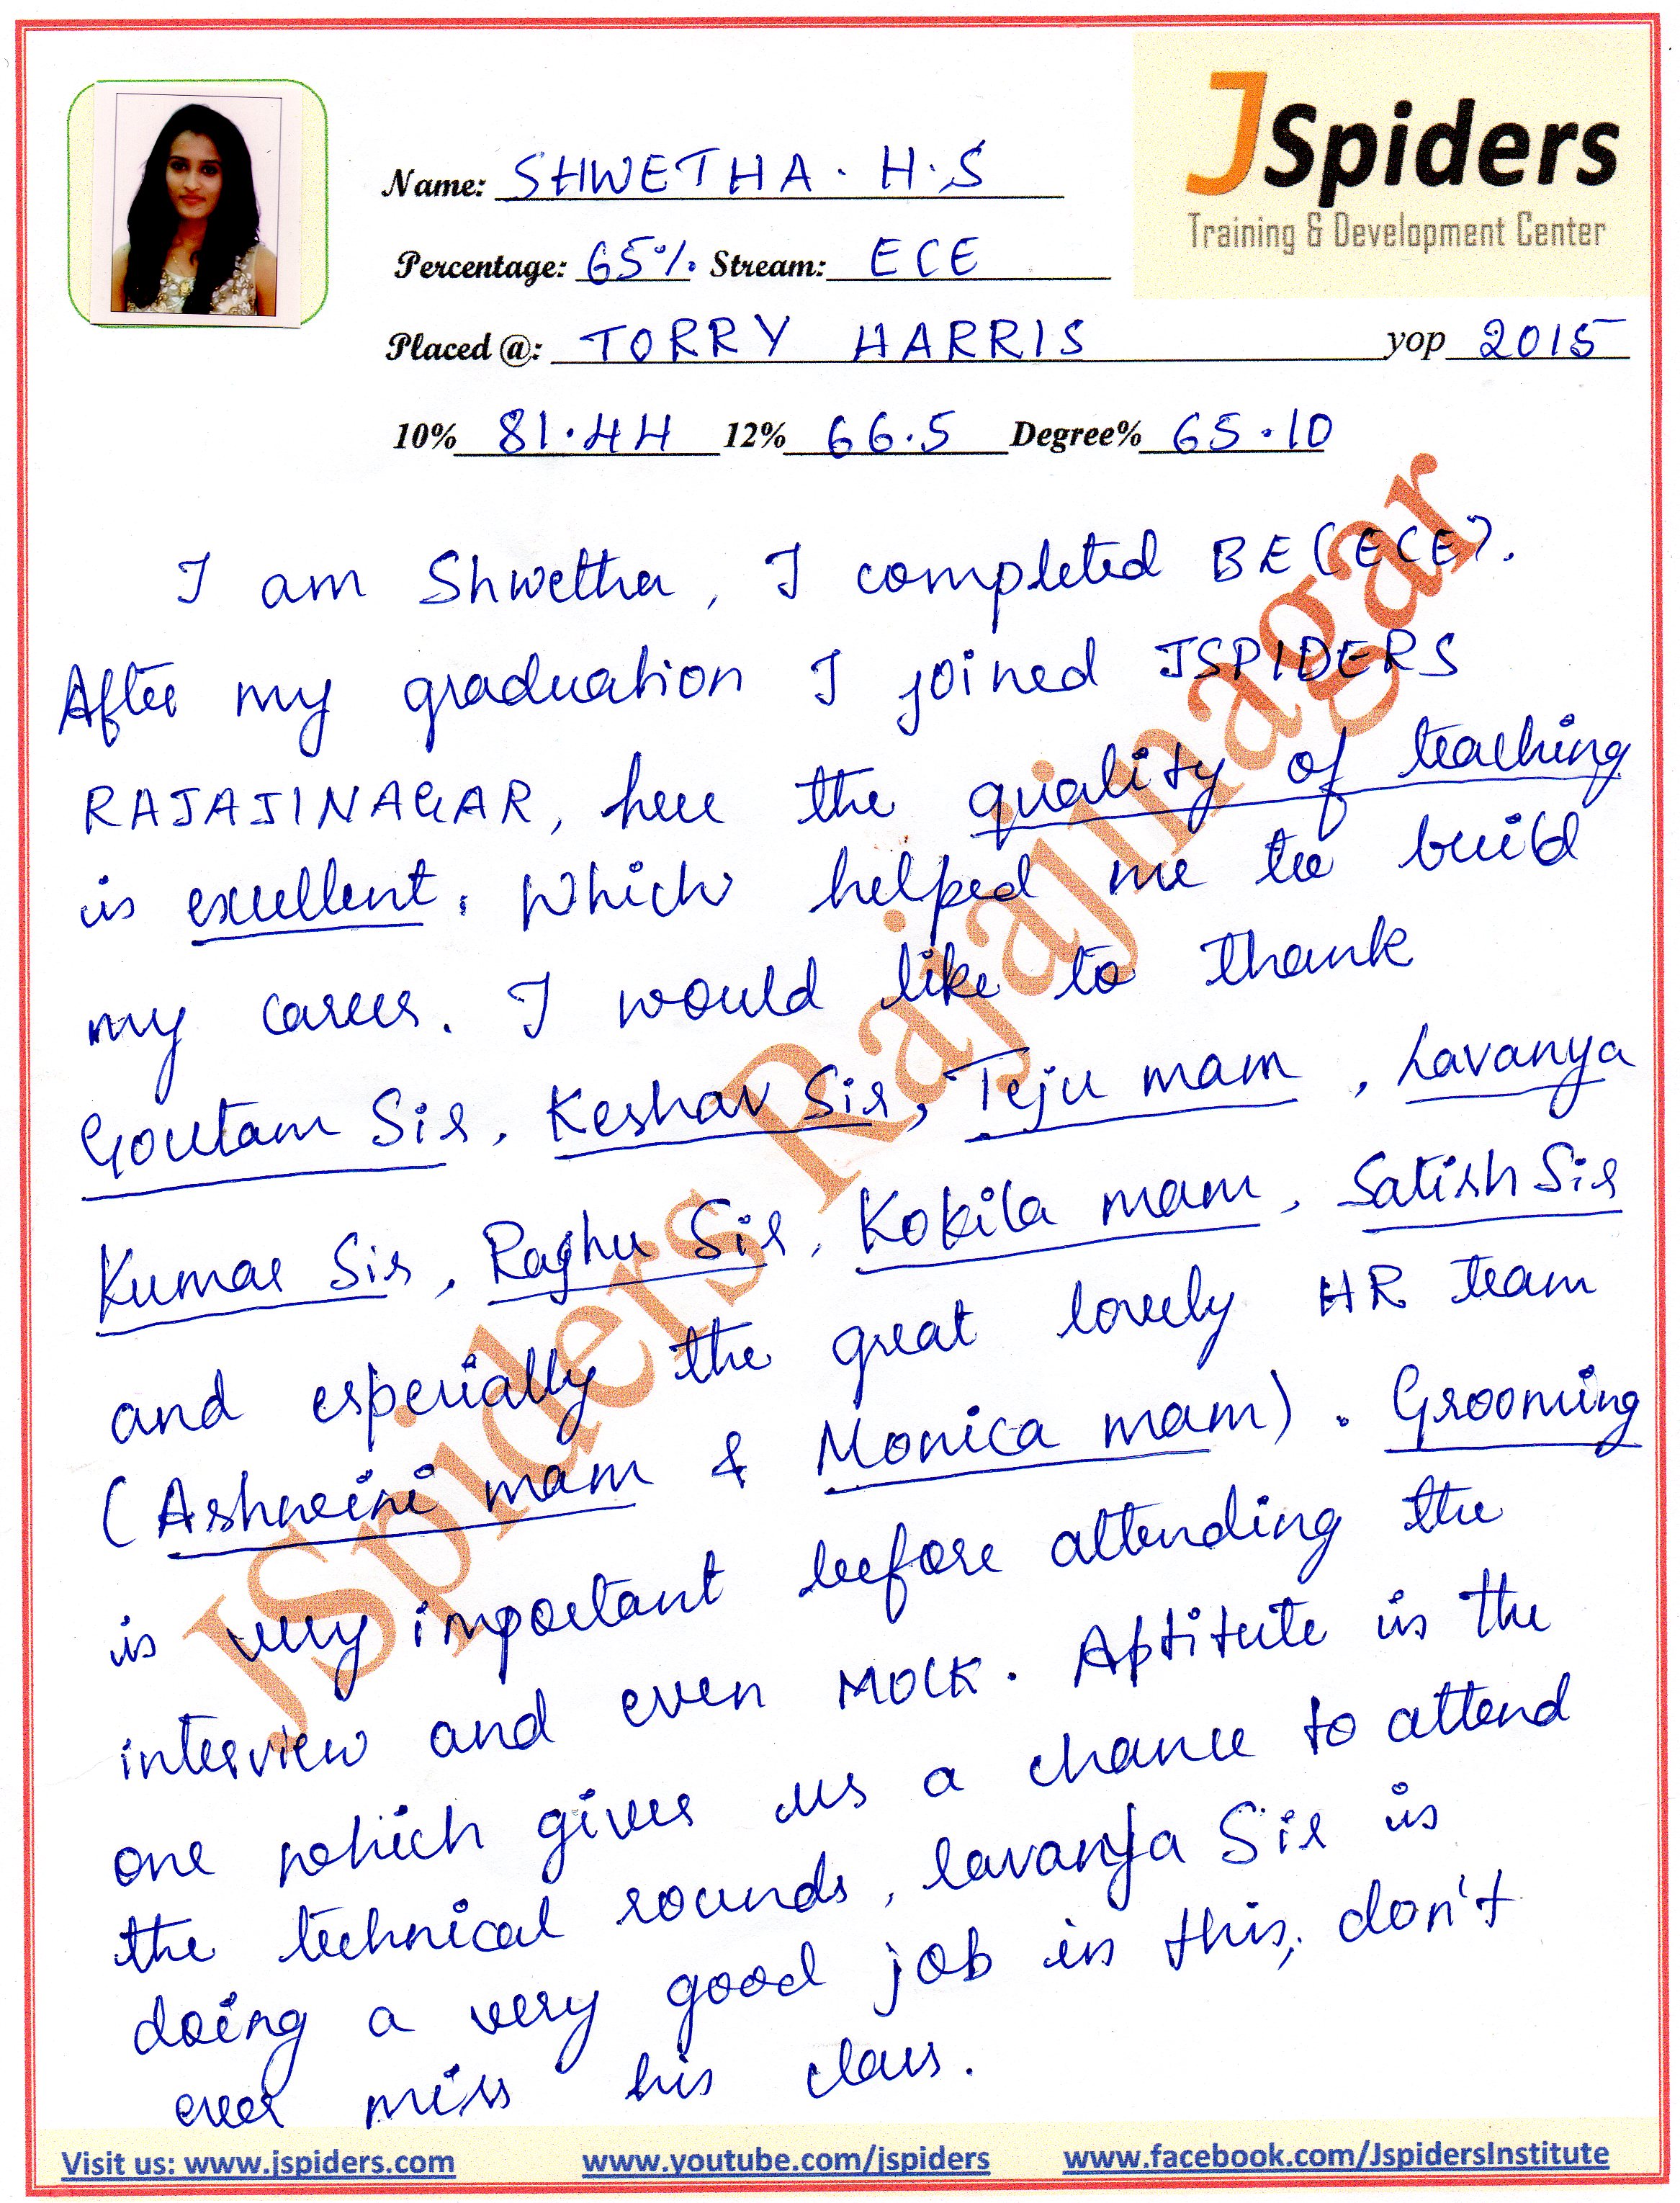 JSpiders
Training & Development Center
Name: SHWETHA. H.S
Percentage: 65% Stream: ECE
Placed @: TORRY HARRIS yop 2015
10% 81.44 12% 66.5 Degree% 65.10
I am Shwetha, I completed BE(ECE).
After my graduation I joined JSPIDERS
RAJAJINAGAR, here the quality of teaching
is excellent, which helped me to build
my career. I would like to thank
Goutam Sir, Keshav Sir, Teju mam, Lavanya
Kumar Sir, Raghu Sir, Kokila mam, Satish Sir
and especially the great lovely HR team
(Ashwini mam & Monica mam). Grooming
is very important before attending the
interview and even MOCK. Aptitute is the
one which gives us a chance to attend
the technical rounds, lavanya Sir is
doing a very good job in this, don't
ever miss his class.
JSpiders Rajajinagar
Visit us: www.jspiders.com www.youtube.com/jspiders www.facebook.com/JspidersInstitute